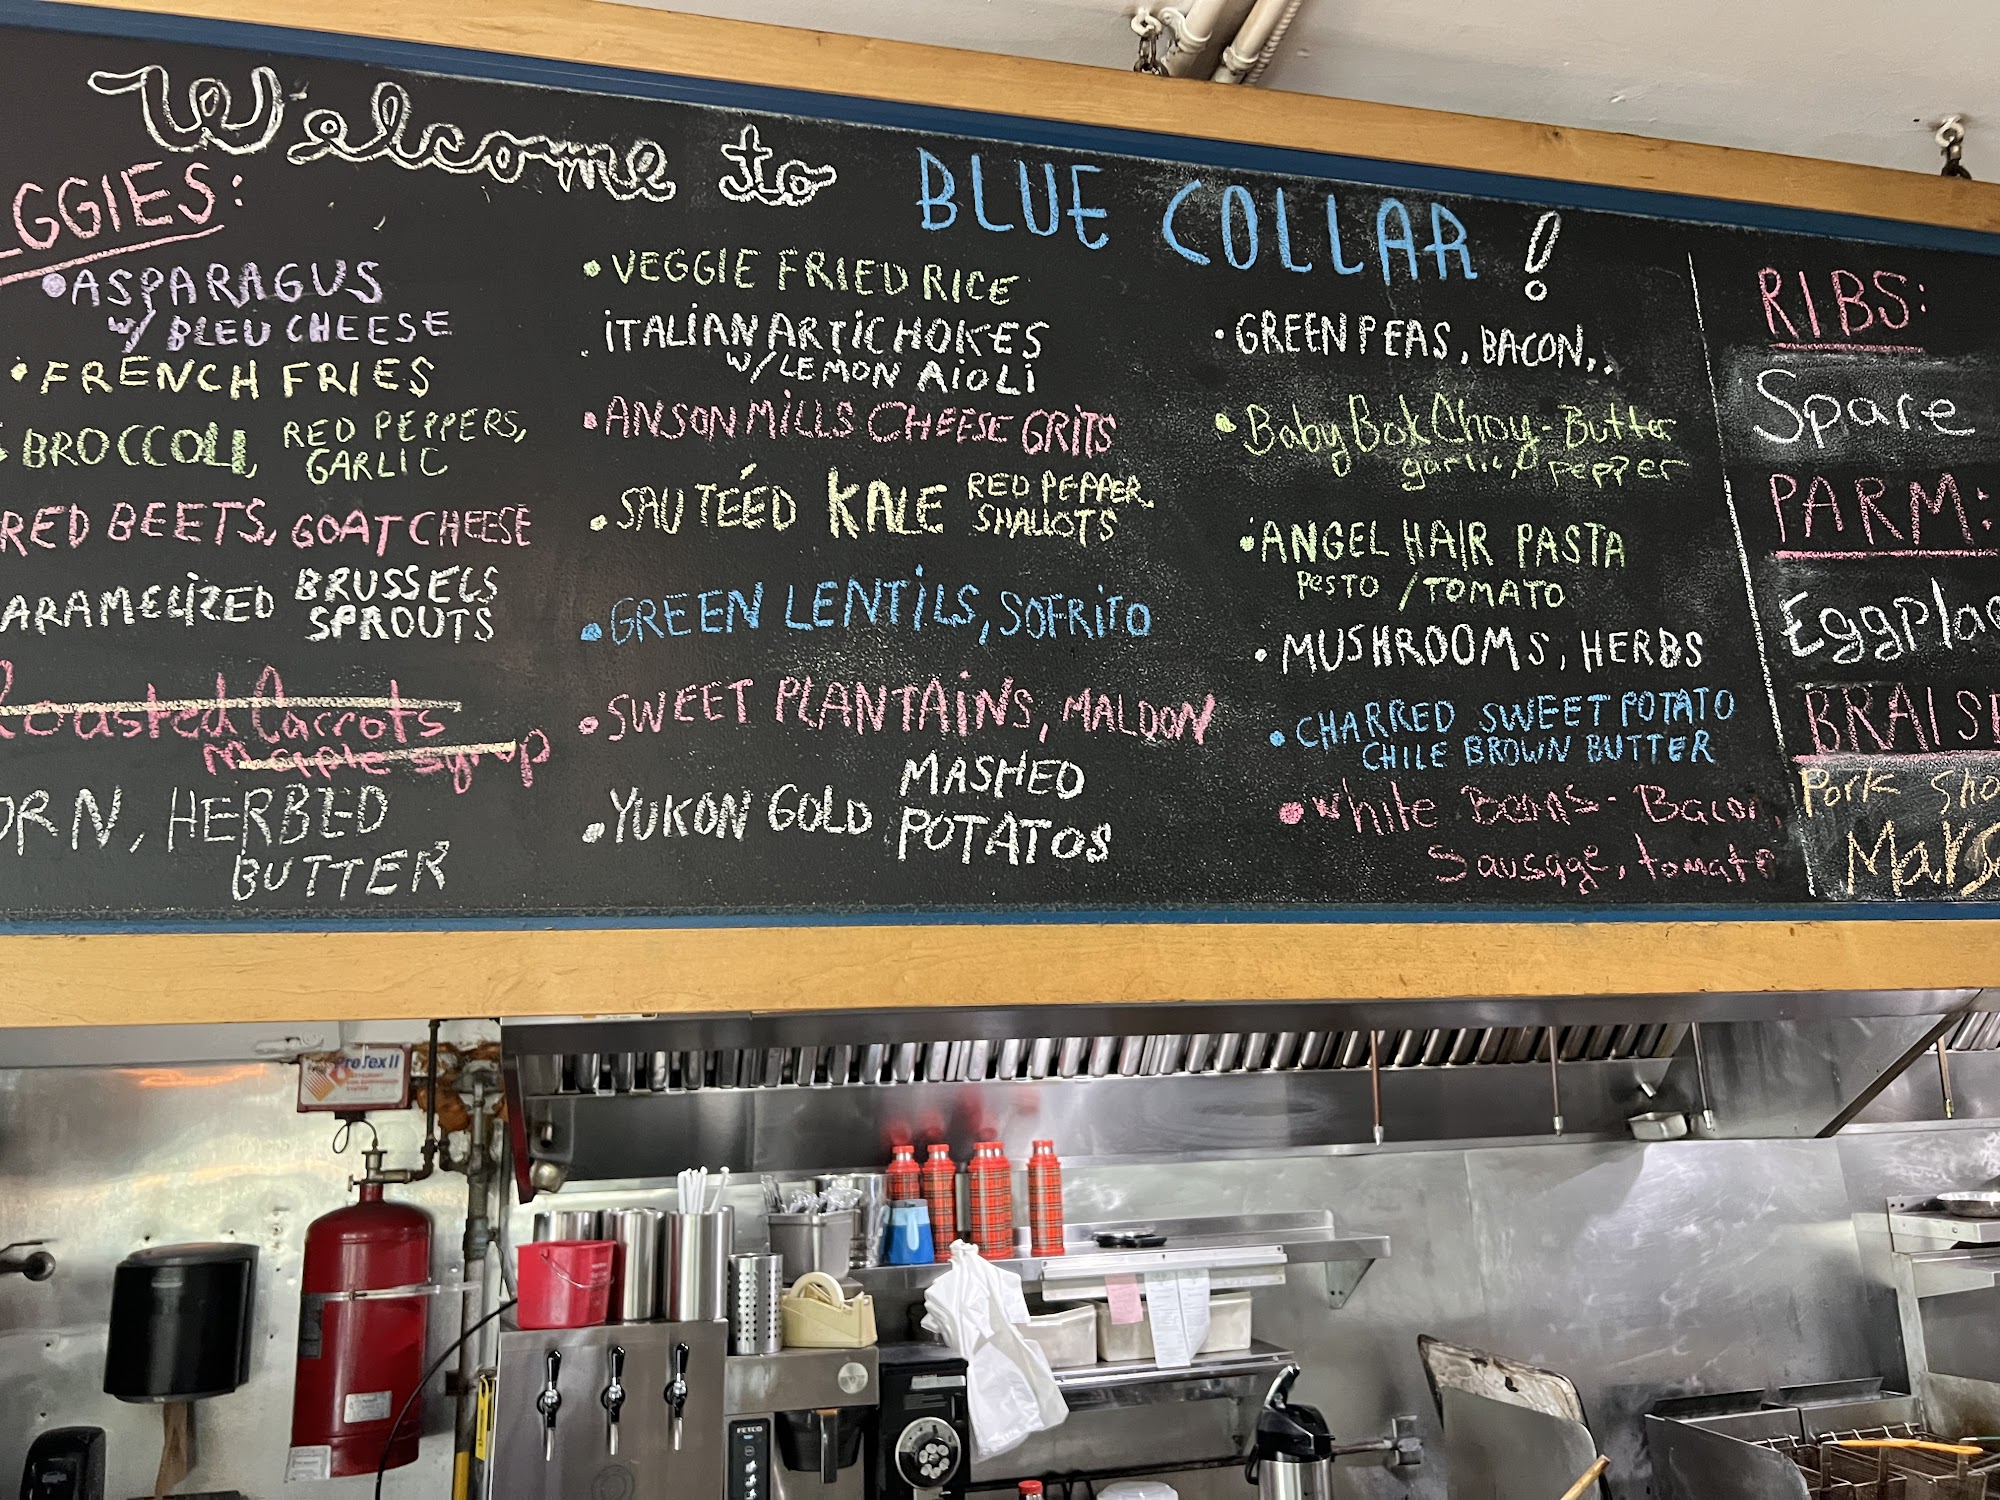 Welcome to BLUE COLLAR!
GGIES:
•ASPARAGUS
w/ BLEU CHEESE
•FRENCH FRIES
BROCCOLI, RED PEPPERS,
GARLIC
RED BEETS, GOAT CHEESE
ARAMELIZED BRUSSELS
SPROUTS
Roasted Carrots
maple syrup
ORN, HERBED
BUTTER
•VEGGIE FRIED RICE
•ITALIAN ARTICHOKES
W/LEMON AIOLI
•ANSON MILLS CHEESE GRITS
•SAUTEÉD KALE RED PEPPER,
SHALLOTS
•GREEN LENTILS, SOFRITO
•SWEET PLANTAINS, MALDON
•YUKON GOLD MASHED
POTATOS
•GREEN PEAS, BACON,.
•Baby Bok Choy-Butter
garlic, pepper
•ANGEL HAIR PASTA
PESTO /TOMATO
•MUSHROOMS, HERBS
•CHARRED SWEET POTATO
CHILE BROWN BUTTER
•White Beans-Bacon,
Sausage, tomato
RIBS:
Spare
PARM:
Eggpla
BRAIS
Pork Sho
Marsa
ProTex II
RESTAURANT
FIRE SUPPRESSION
SYSTEM
FETCO